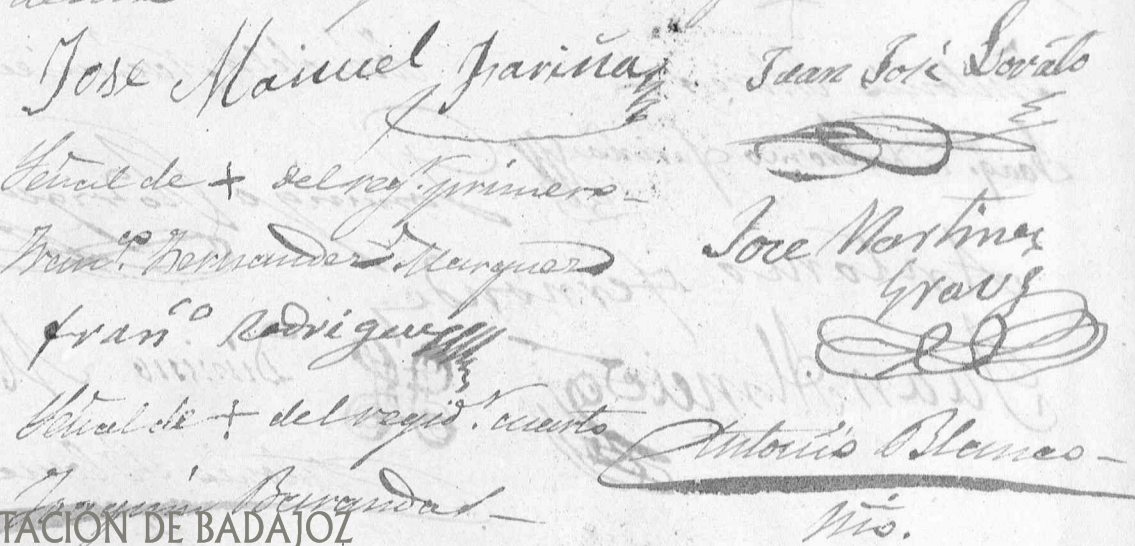 Jose Manuel Fariña
Juan José Lovato
Señal de + del regr. primero_
Franco. Hernandez Marquez
Jose Martinez
Graug
franco Rodriguez
Señal de + del regidr. cuarto
Antonio Blanco_
Joaquin
Srio.
TACIÓN DE BADAJOZ